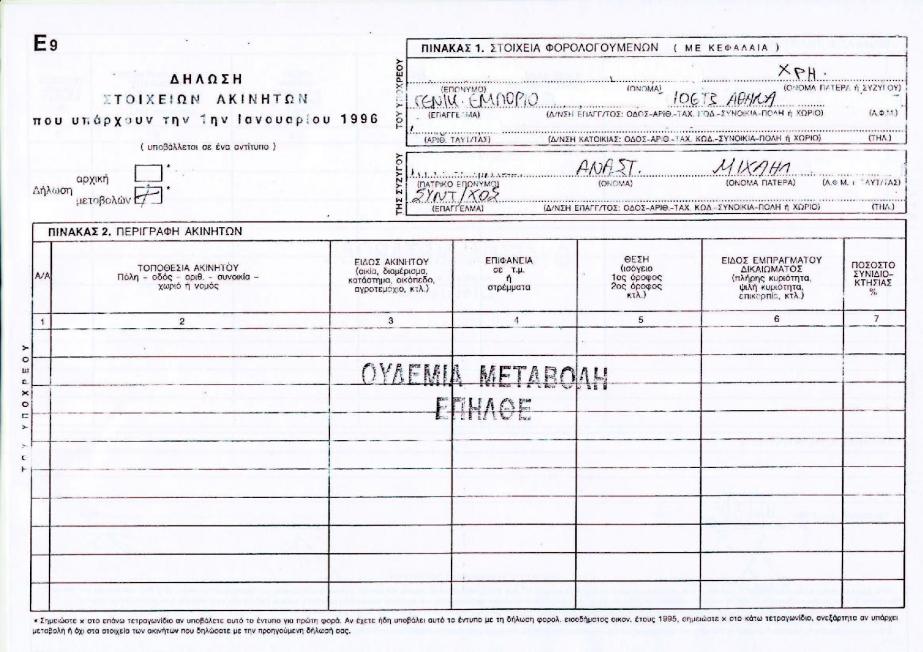 E9
ΔΗΛΩΣΗ
ΣΤΟΙΧΕΙΩΝ ΑΚΙΝΗΤΩΝ
που υπάρχουν την 1ην Ιανουαρίου 1996
( υποβάλλεται σε ένα αντίτυπο )
Δήλωση
αρχική *
μεταβολών *
ΠΙΝΑΚΑΣ 1. ΣΤΟΙΧΕΙΑ ΦΟΡΟΛΟΓΟΥΜΕΝΩΝ ( ΜΕ ΚΕΦΑΛΑΙΑ )
ΤΟΥ ΥΠΟΧΡΕΟΥ
ΧΡΗ.
(ΕΠΩΝΥΜΟ) (ΟΝΟΜΑ) (ΟΝΟΜΑ ΠΑΤΕΡΑ ή ΣΥΖΥΓΟΥ)
ΓΕΝΙΚ. ΕΜΠΟΡΙΟ ΑΘΗΝΑ
(ΕΠΑΓΓΕΛΜΑ) (Δ/ΝΣΗ ΕΠΑΓΓ/ΤΟΣ: ΟΔΟΣ-ΑΡΙΘ.-ΤΑΧ. ΚΩΔ.-ΣΥΝΟΙΚΙΑ-ΠΟΛΗ ή ΧΩΡΙΟ) (Α.Φ.Μ.)
(ΑΡΙΘ. ΤΑΥΤ/ΤΑΣ) (Δ/ΝΣΗ ΚΑΤΟΙΚΙΑΣ: ΟΔΟΣ-ΑΡΙΘ.-ΤΑΧ. ΚΩΔ.-ΣΥΝΟΙΚΙΑ-ΠΟΛΗ ή ΧΩΡΙΟ) (ΤΗΛ.)
ΤΗΣ ΣΥΖΥΓΟΥ
ΑΝΑΣΤ. ΜΙΧΑΗΛ
(ΠΑΤΡΙΚΟ ΕΠΩΝΥΜΟ) (ΟΝΟΜΑ) (ΟΝΟΜΑ ΠΑΤΕΡΑ) (Α.Φ.Μ. ΤΑΥΤ/ΤΑΣ)
ΣΥΝΤ/ΧΟΣ
(ΕΠΑΓΓΕΛΜΑ) (Δ/ΝΣΗ ΕΠΑΓΓ/ΤΟΣ: ΟΔΟΣ-ΑΡΙΘ.-ΤΑΧ. ΚΩΔ.-ΣΥΝΟΙΚΙΑ-ΠΟΛΗ ή ΧΩΡΙΟ) (ΤΗΛ.)
ΠΙΝΑΚΑΣ 2. ΠΕΡΙΓΡΑΦΗ ΑΚΙΝΗΤΩΝ
Α/Α
ΤΟΠΟΘΕΣΙΑ ΑΚΙΝΗΤΟΥ
Πόλη – οδός – αριθ. – συνοικία –
χωριό ή νομός
ΕΙΔΟΣ ΑΚΙΝΗΤΟΥ
(οικία, διαμέρισμα,
κατάστημα, οικόπεδο,
αγροτεμάχιο, κτλ.)
ΕΠΙΦΑΝΕΙΑ
σε τ.μ.
ή
στρέμματα
ΘΕΣΗ
(ισόγειο
1ος όροφος
2ος όροφος
κτλ.)
ΕΙΔΟΣ ΕΜΠΡΑΓΜΑΤΟΥ
ΔΙΚΑΙΩΜΑΤΟΣ
(πλήρης κυριότητα,
ψιλή κυριότητα,
επικαρπία, κτλ.)
ΠΟΣΟΣΤΟ
ΣΥΝΙΔΙΟ-
ΚΤΗΣΙΑΣ
%
1 2 3 4 5 6 7
ΥΠΟΧΡΕΟΥ
ΟΥΔΕΜΙΑ ΜΕΤΑΒΟΛΗ
ΕΠΗΛΘΕ
* Σημειώστε x στο επάνω τετραγωνίδιο αν υποβάλετε αυτό το έντυπο για πρώτη φορά. Αν έχετε ήδη υποβάλει αυτό το έντυπο με τη δήλωση φορολ. εισοδήματος οικον. έτους 1995, σημειώστε x στο κάτω τετραγωνίδιο, ανεξάρτητα αν υπάρχει
μεταβολή ή όχι στα στοιχεία των ακινήτων που δηλώσατε με την προηγούμενη δήλωσή σας.